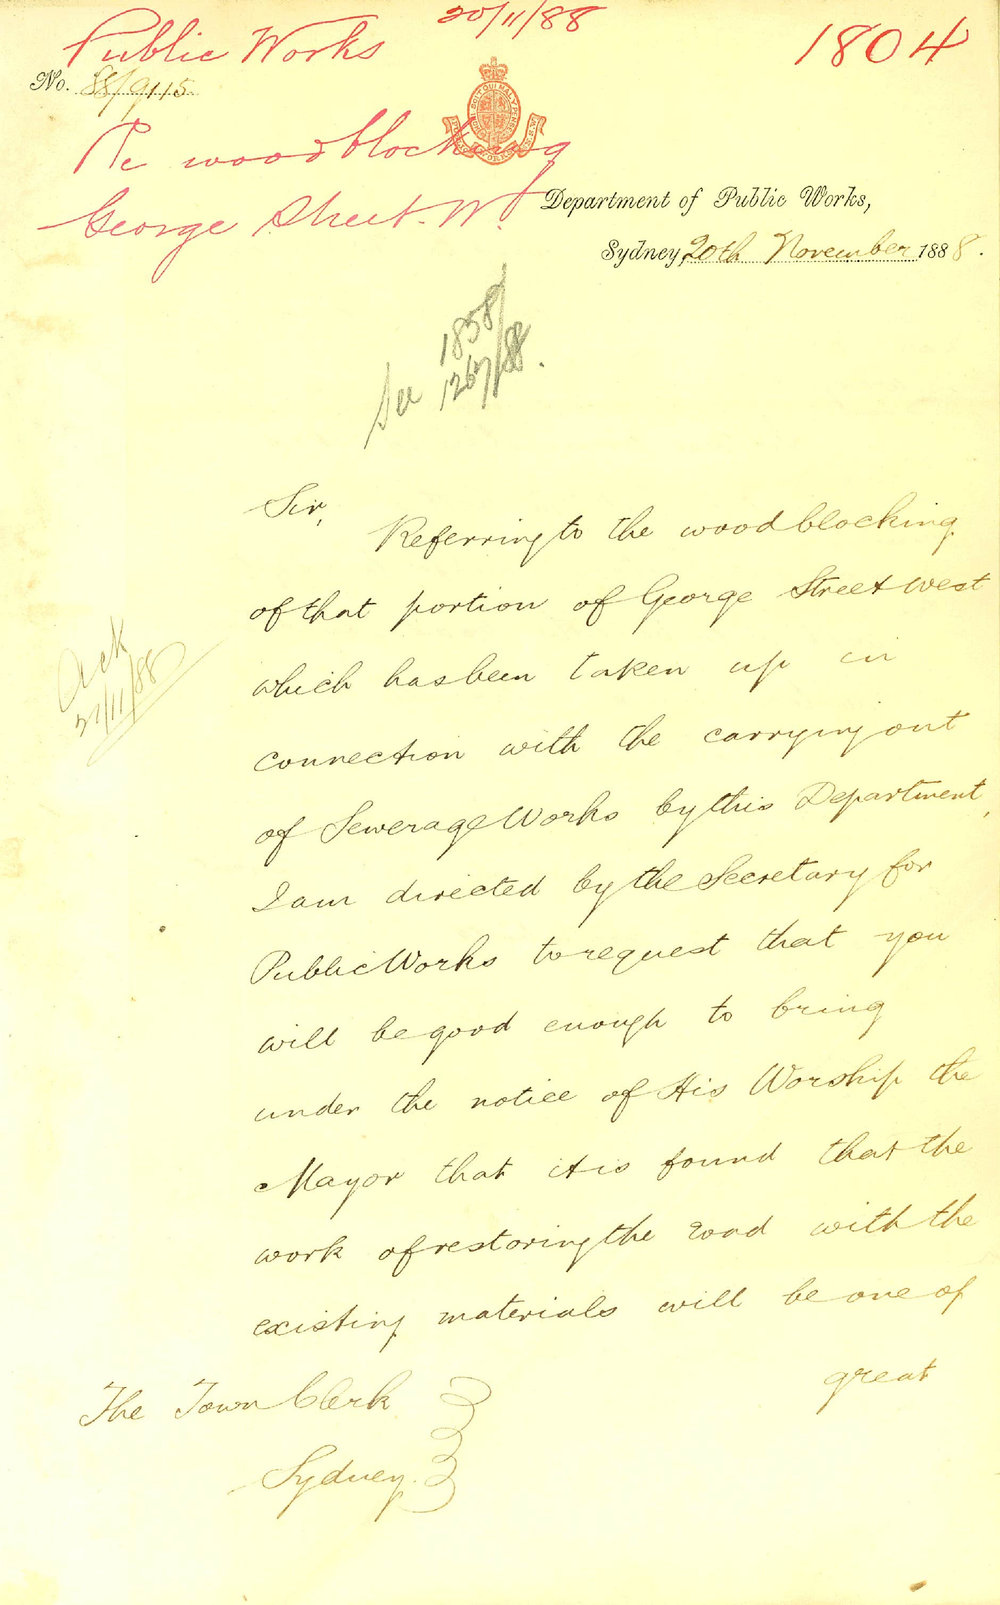 Public Works
20/11/88
1804
No. 88/9115
Re woodblocking
George Street W.
Department of Public Works,
Sydney, 20th November 1888.
See 1858/
1267/88.
Sir,
Referring to the woodblocking
of that portion of George Street West
which has been taken up in
connection with the carrying out
of Sewerage Works by this Department,
I am directed by the Secretary for
Public Works to request that you
will be good enough to bring
under the notice of His Worship the
Mayor that it is found that the
work of restoring the road with the
existing materials will be one of
great
Ack
21/11/88
The Town Clerk
Sydney.